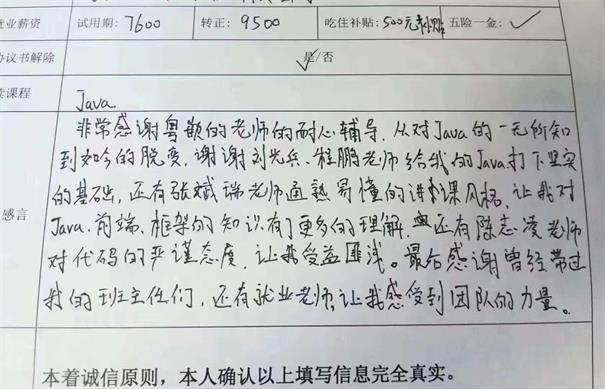 就业薪资 试用期: 7600 转正: 9500 吃住补贴: 500元 五险一金: ✓
协议书解除 是/否
读课程 Java
感言
非常感谢粤嵌的老师的耐心辅导，从对Java的一无所知
到如今的脱变，谢谢刘光兵、程鹏老师给我的Java打下坚实
的基础，还有张斌瑞老师通熟易懂的讲课风格，让我对
Java、前端、框架的知识有了更多的理解，还有陈志凌老师
对代码的严谨态度，让我受益匪浅。最后感谢曾经带过
我的班主任们，还有就业老师，让我感受到团队的力量。
本着诚信原则，本人确认以上填写信息完全真实。